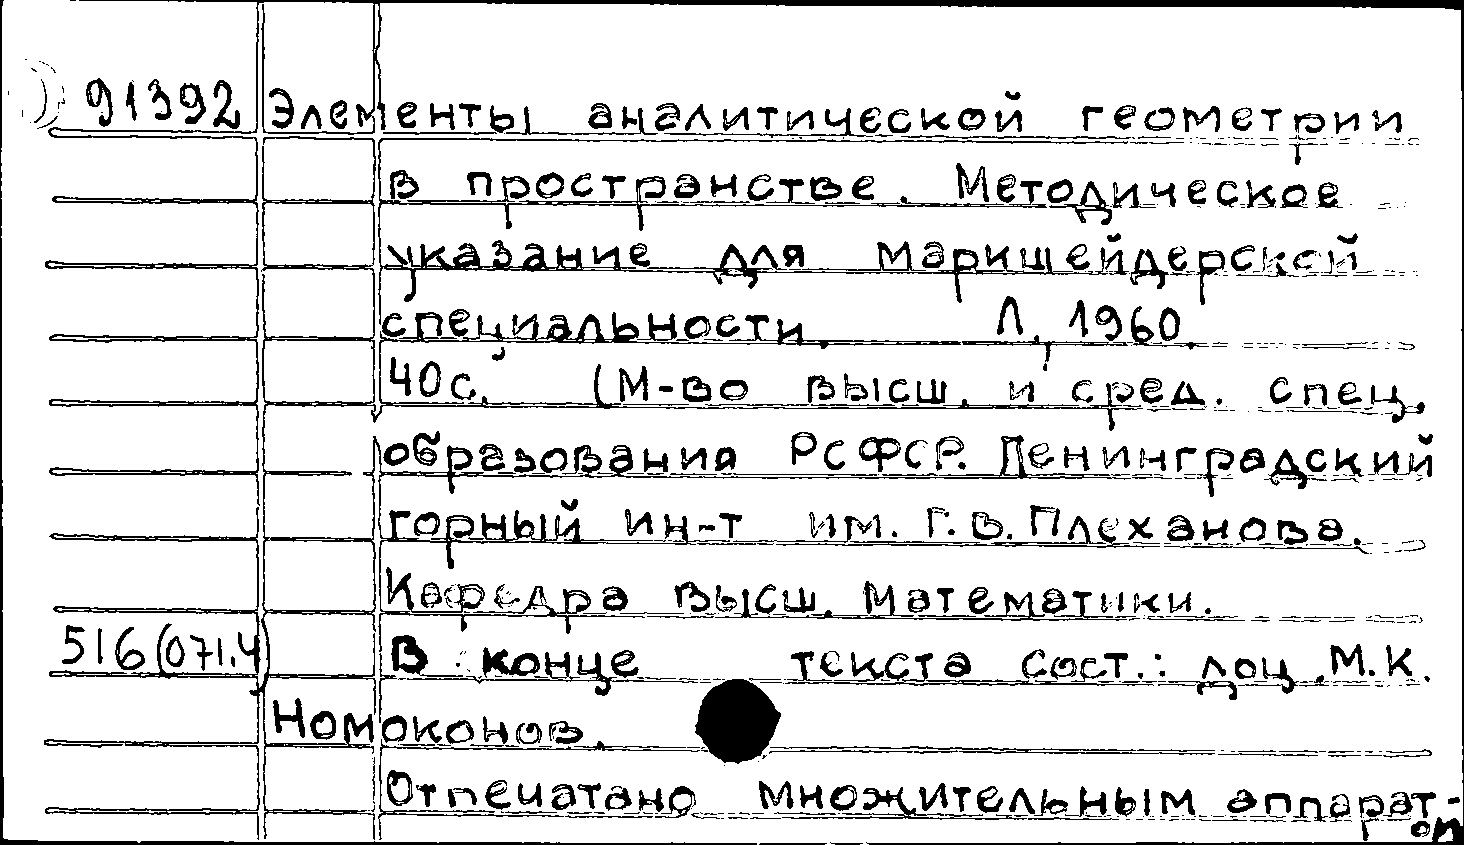 91392 Элементы аналитической геометрии
в пространстве. Методическое
указание для маркшейдерской
специальности. Л., 1960.
40с. (М-во высш. и сред. спец.
образования РСФСР. Ленинградский
горный ин-т им. Г.В. Плеханова.
Кафедра высш. математики.
516(071.4) В конце текста сост.: доц. М.К.
Номоконов.
Отпечатано множительным аппарат-
ом